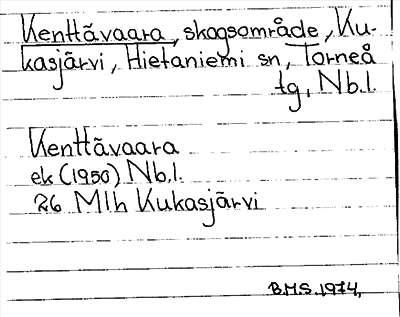 Kenttävaara, skogsområde, Ku-
kasjärvi, Hietaniemi sn, Torneå
tg, Nb.l.
Kenttävaara
ek (1950) Nb.l.
26 Mlh Kukasjärvi
B.M.S. 1974,